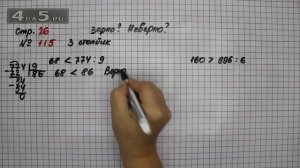 4DA5.RU
Стр. 26 Верно? Неверно?
№ 115 3 столбик
68 < 774 : 9 160 > 896 : 6
774 | 9
72 | 86 68 < 86 Верно
54
54
0